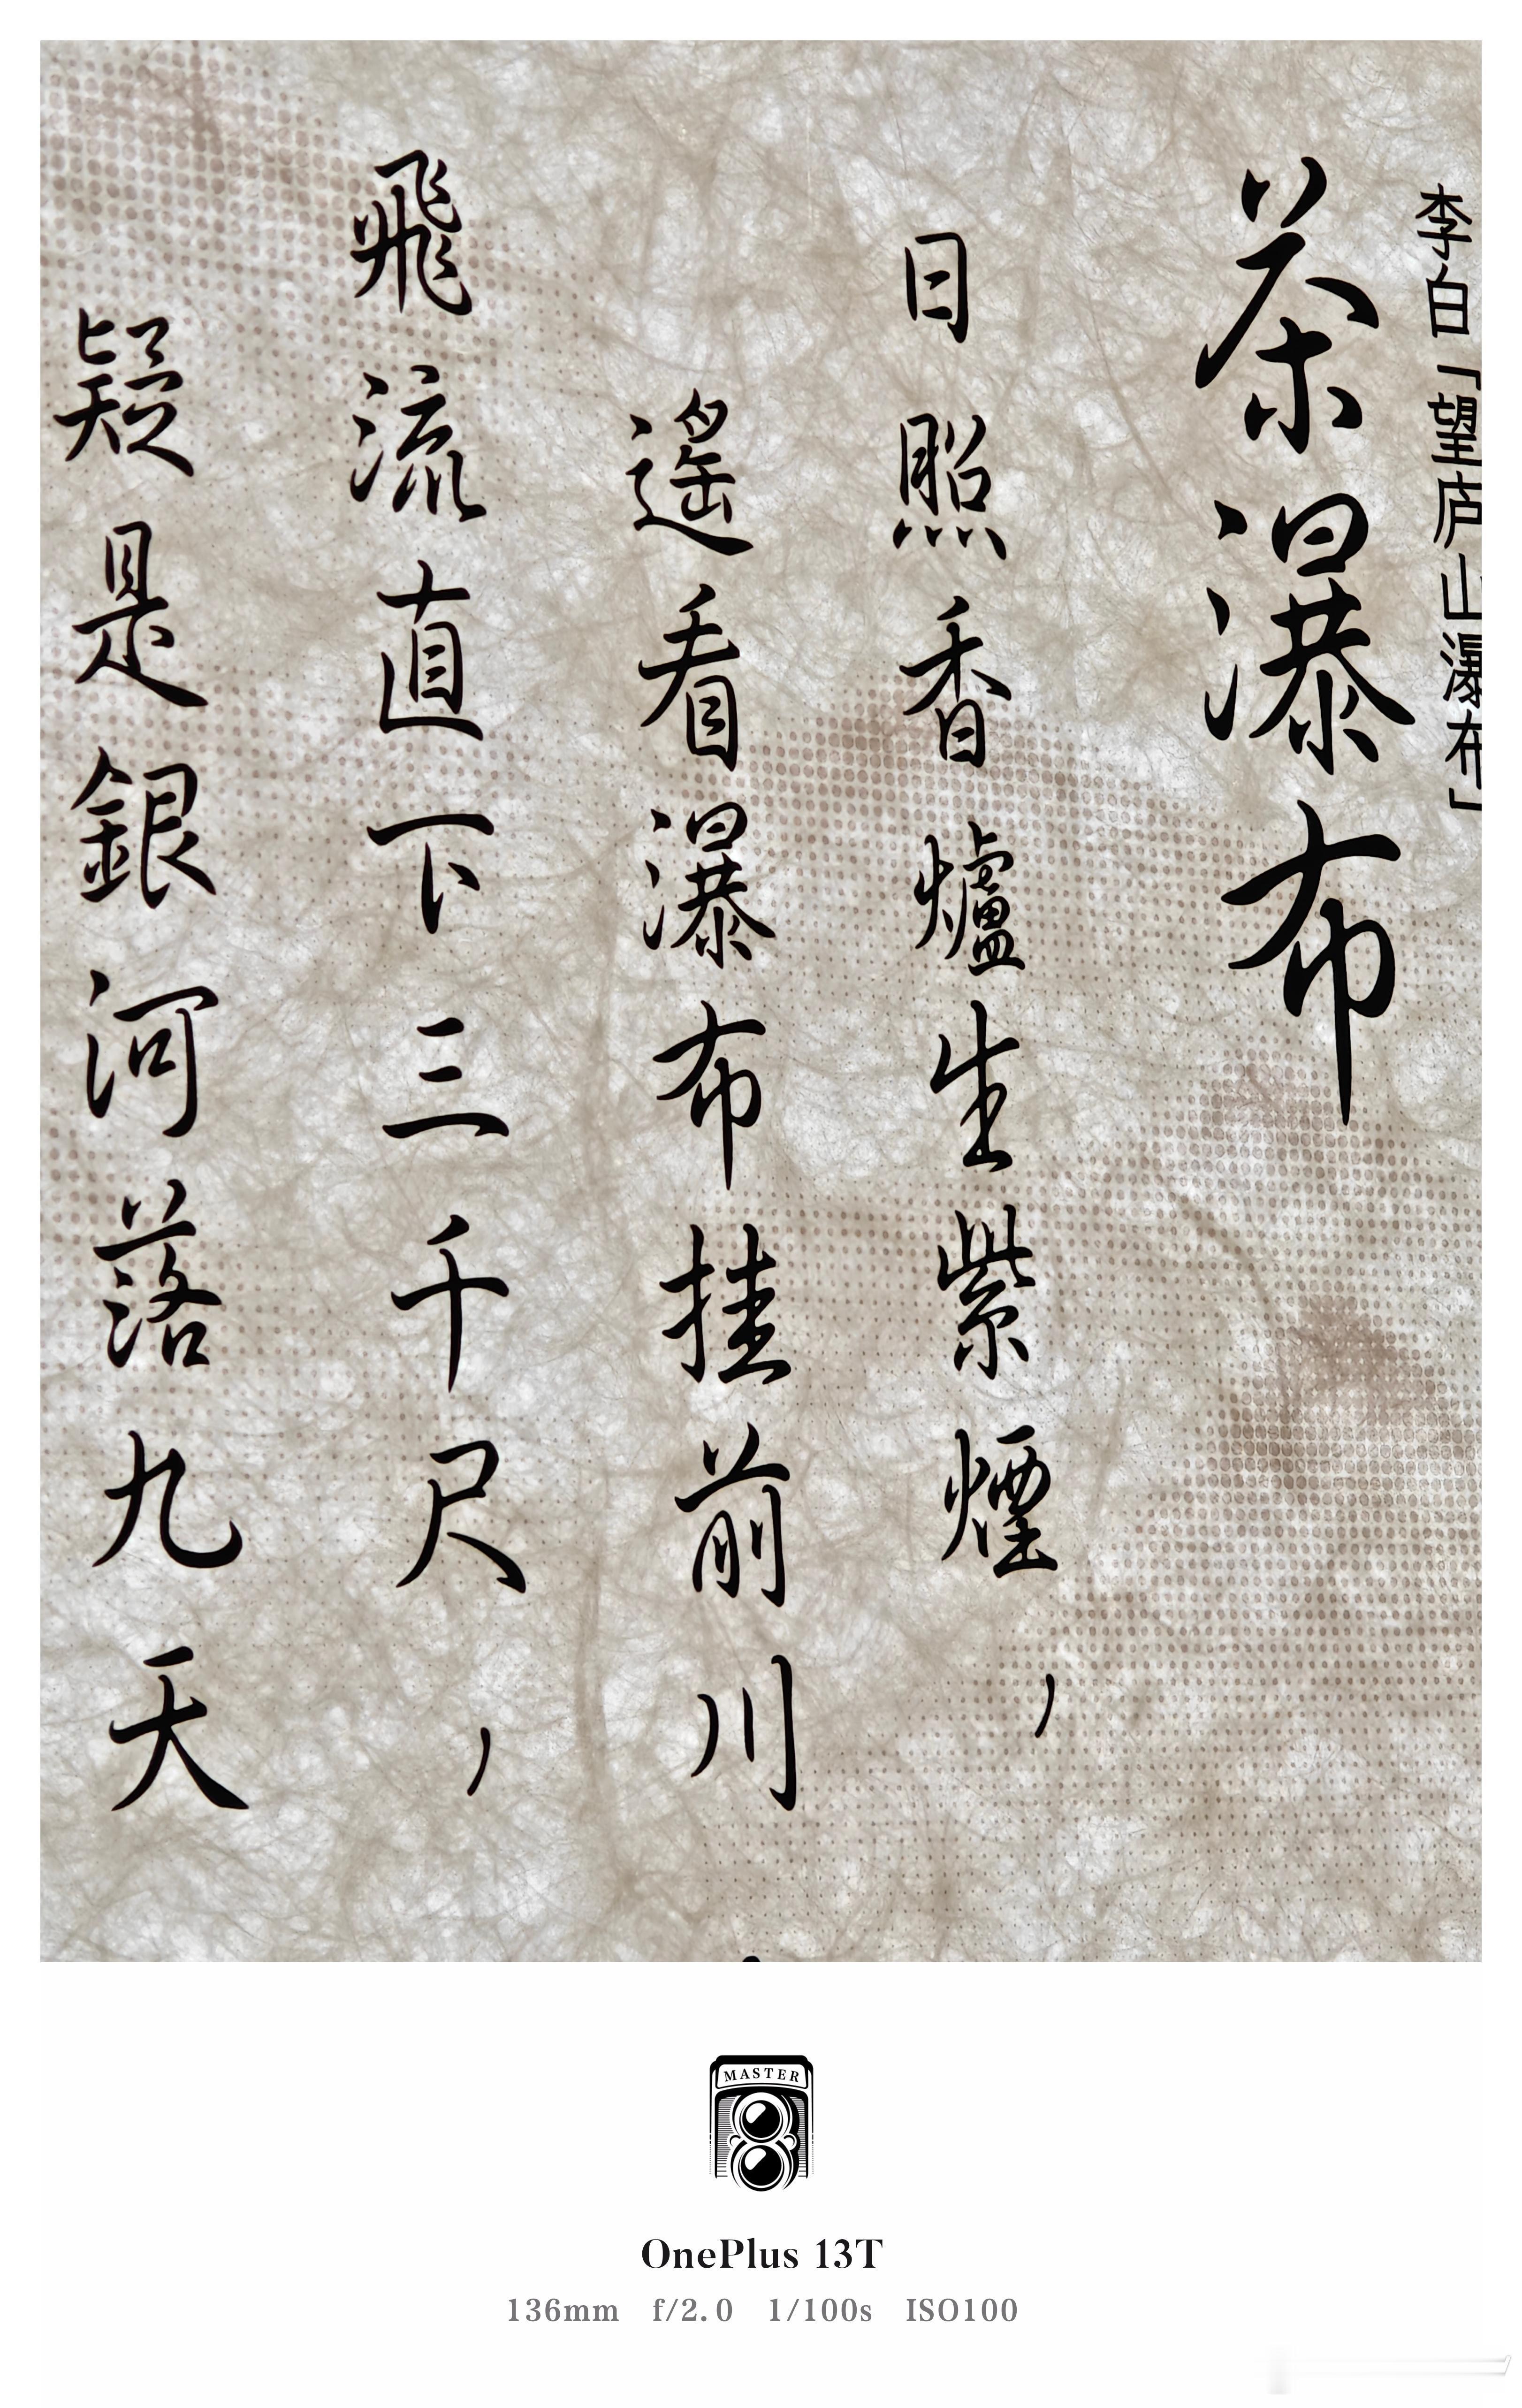 李白「望庐山瀑布」
茶瀑布
日照香爐生紫煙，
遙看瀑布挂前川
飛流直下三千尺，
疑是銀河落九天
MASTER
OnePlus 13T
136mm f/2.0 1/100s ISO100